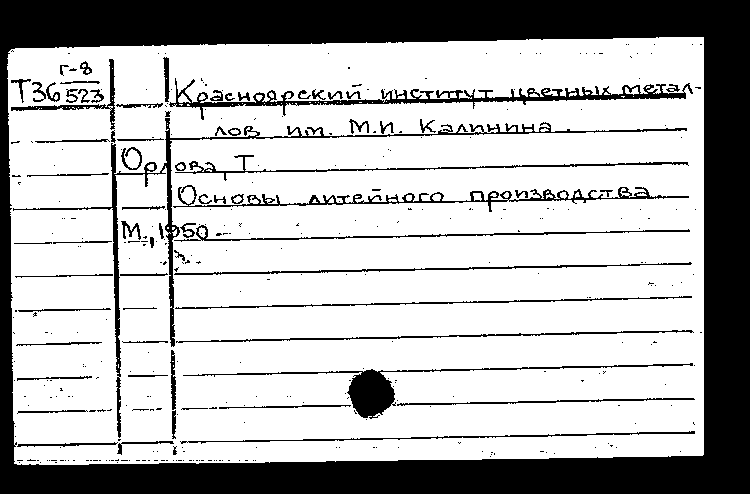 Г-8
Т36 523 Красноярский институт цветных метал-
лов им. М.И. Калинина.
Орлова, Т.
Основы литейного производства.
М., 1950 -